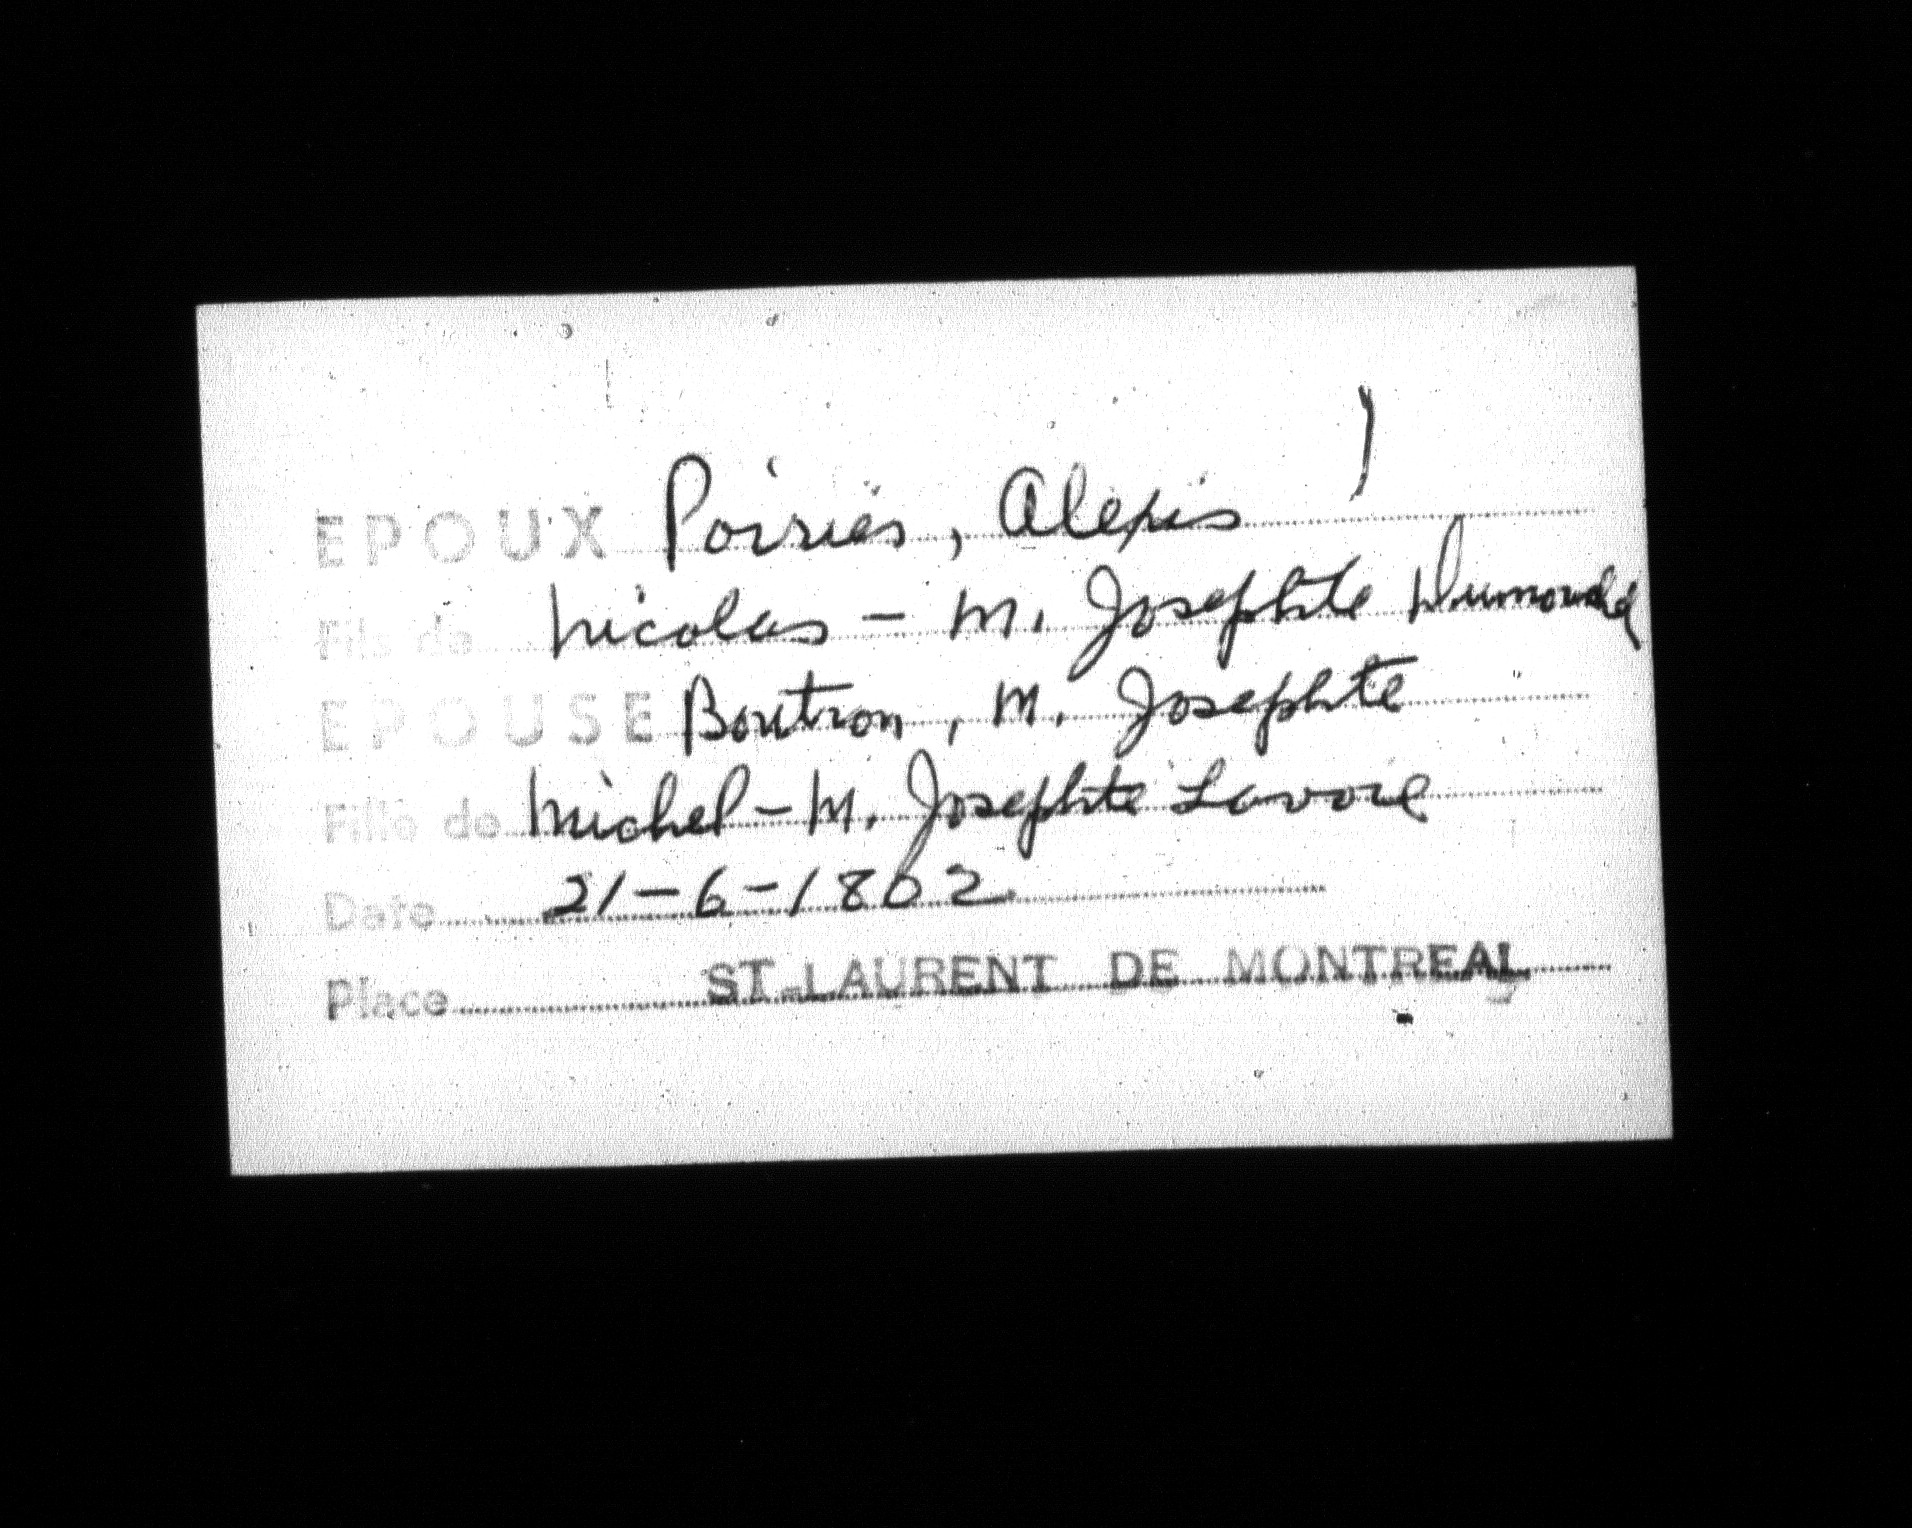 EPOUX Poirier, Alexis
Fils de Nicolas - M. Josephte
EPOUSE Boutron, M. Josephte
Fille de Michel - M. Josephte Lavoie
Date 21-6-1802
Place ST-LAURENT DE MONTREAL